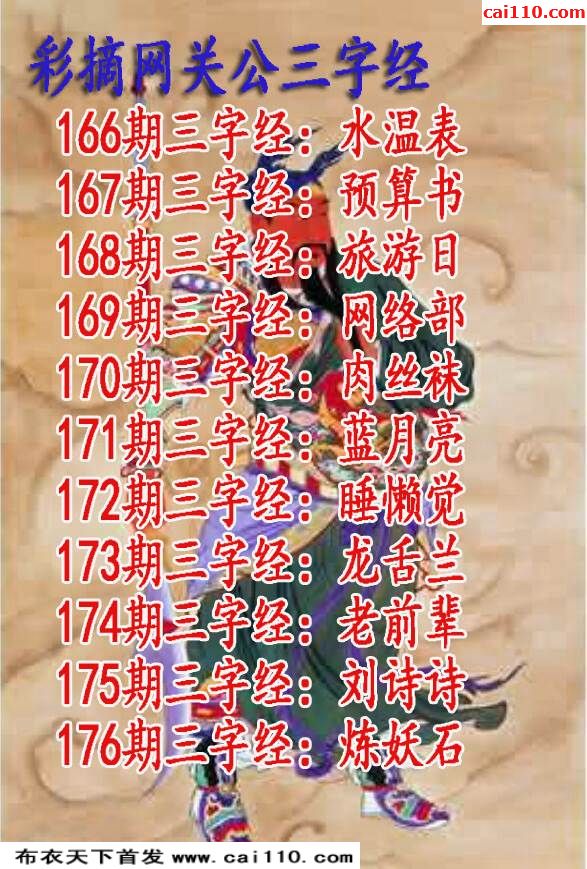 cai110.com
彩摘网关公三字经
166期三字经：水温表
167期三字经：预算书
168期三字经：旅游日
169期三字经：网络部
170期三字经：肉丝袜
171期三字经：蓝月亮
172期三字经：睡懒觉
173期三字经：龙舌兰
174期三字经：老前辈
175期三字经：刘诗诗
176期三字经：炼妖石
布衣天下首发 www.cai110.com